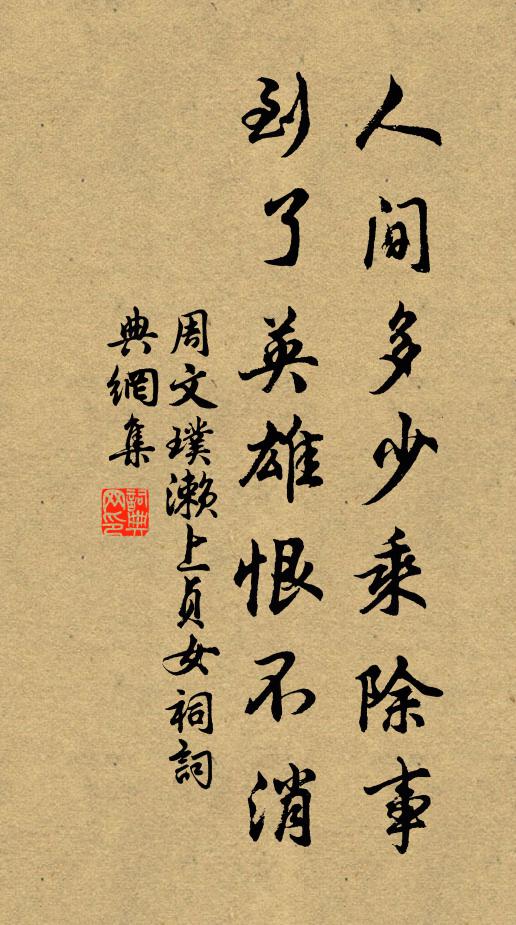 人间多少乘除事
到了英雄恨不消
周文璞濑上貞女祠詞
典網集
詞典
网印